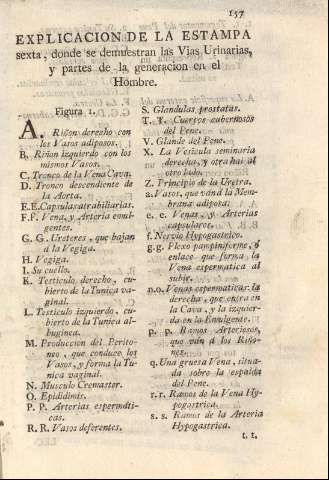 157
EXPLICACION DE LA ESTAMPA
sexta, donde se demuestran las Vias Urinarias,
y partes de la generacion en el
Hombre.
Figura 1.
A. Riñon derecho con
los Vasos adiposos.
B. Riñon izquierdo con los
mismos Vasos.
C. Tronco de la Vena Cava.
D. Tronco descendiente de
la Aorta.
E.E. Capsulas atrabiliarias.
F.F. Vena, y Arteria emul-
gentes.
G. G. Ureteres, que bajan
á la Vegiga.
H. Vegiga.
I. Su cuello.
K. Testiculo derecho, cu-
bierto de la Tunica va-
ginal.
L. Testiculo izquierdo, cu-
bierto de la Tunica al-
buginea.
M. Produccion del Perito-
neo, que conduce los
Vasos, y forma la Tu-
nica vaginal.
N. Musculo Cremaster.
O. Epididimis.
P. P. Arterias espermati-
cas.
R. R. Vasos deferentes.
S. Glandulas prostatas.
T. T. Cuerpos cabernosos
del Pene.
V. Glande del Pene.
X. La Vesicula seminaria
derecha, y otra hai al
otro lado.
Z. Principio de la Uretra.
a. Vasos, que ván á la Mem-
brana adiposa.
e. e. Venas, y Arterias
capsulares.
f. Nervio Hypogastrico.
g.g. Plexo pampiniforme, ó
enlace que forma la
Vena espermatica al
subir.
n.o. Venas espermaticas: la
derecha, que entra en
la Cava, y la izquier-
da en la Emulgente.
p. p. Ramos Arteriosos,
que ván á los Riño-
nes.
q. Una gruesa Vena, situa-
da sobre la espalda
del Pene.
r.r. Ramos de la Vena Hy-
pogastrica.
s. s. Ramos de la Arteria
Hypogastrica.
t. t.